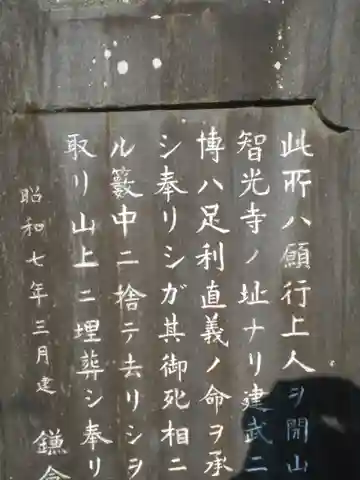 此所ハ願行上人ヲ開山
智光寺ノ址ナリ建武二
博ハ足利直義ノ命ヲ承
シ奉リシガ其御死相ニ
ル籔中ニ捨テ去リシヲ
取リ山上ニ埋葬シ奉リ
昭和七年三月建
鎌倉